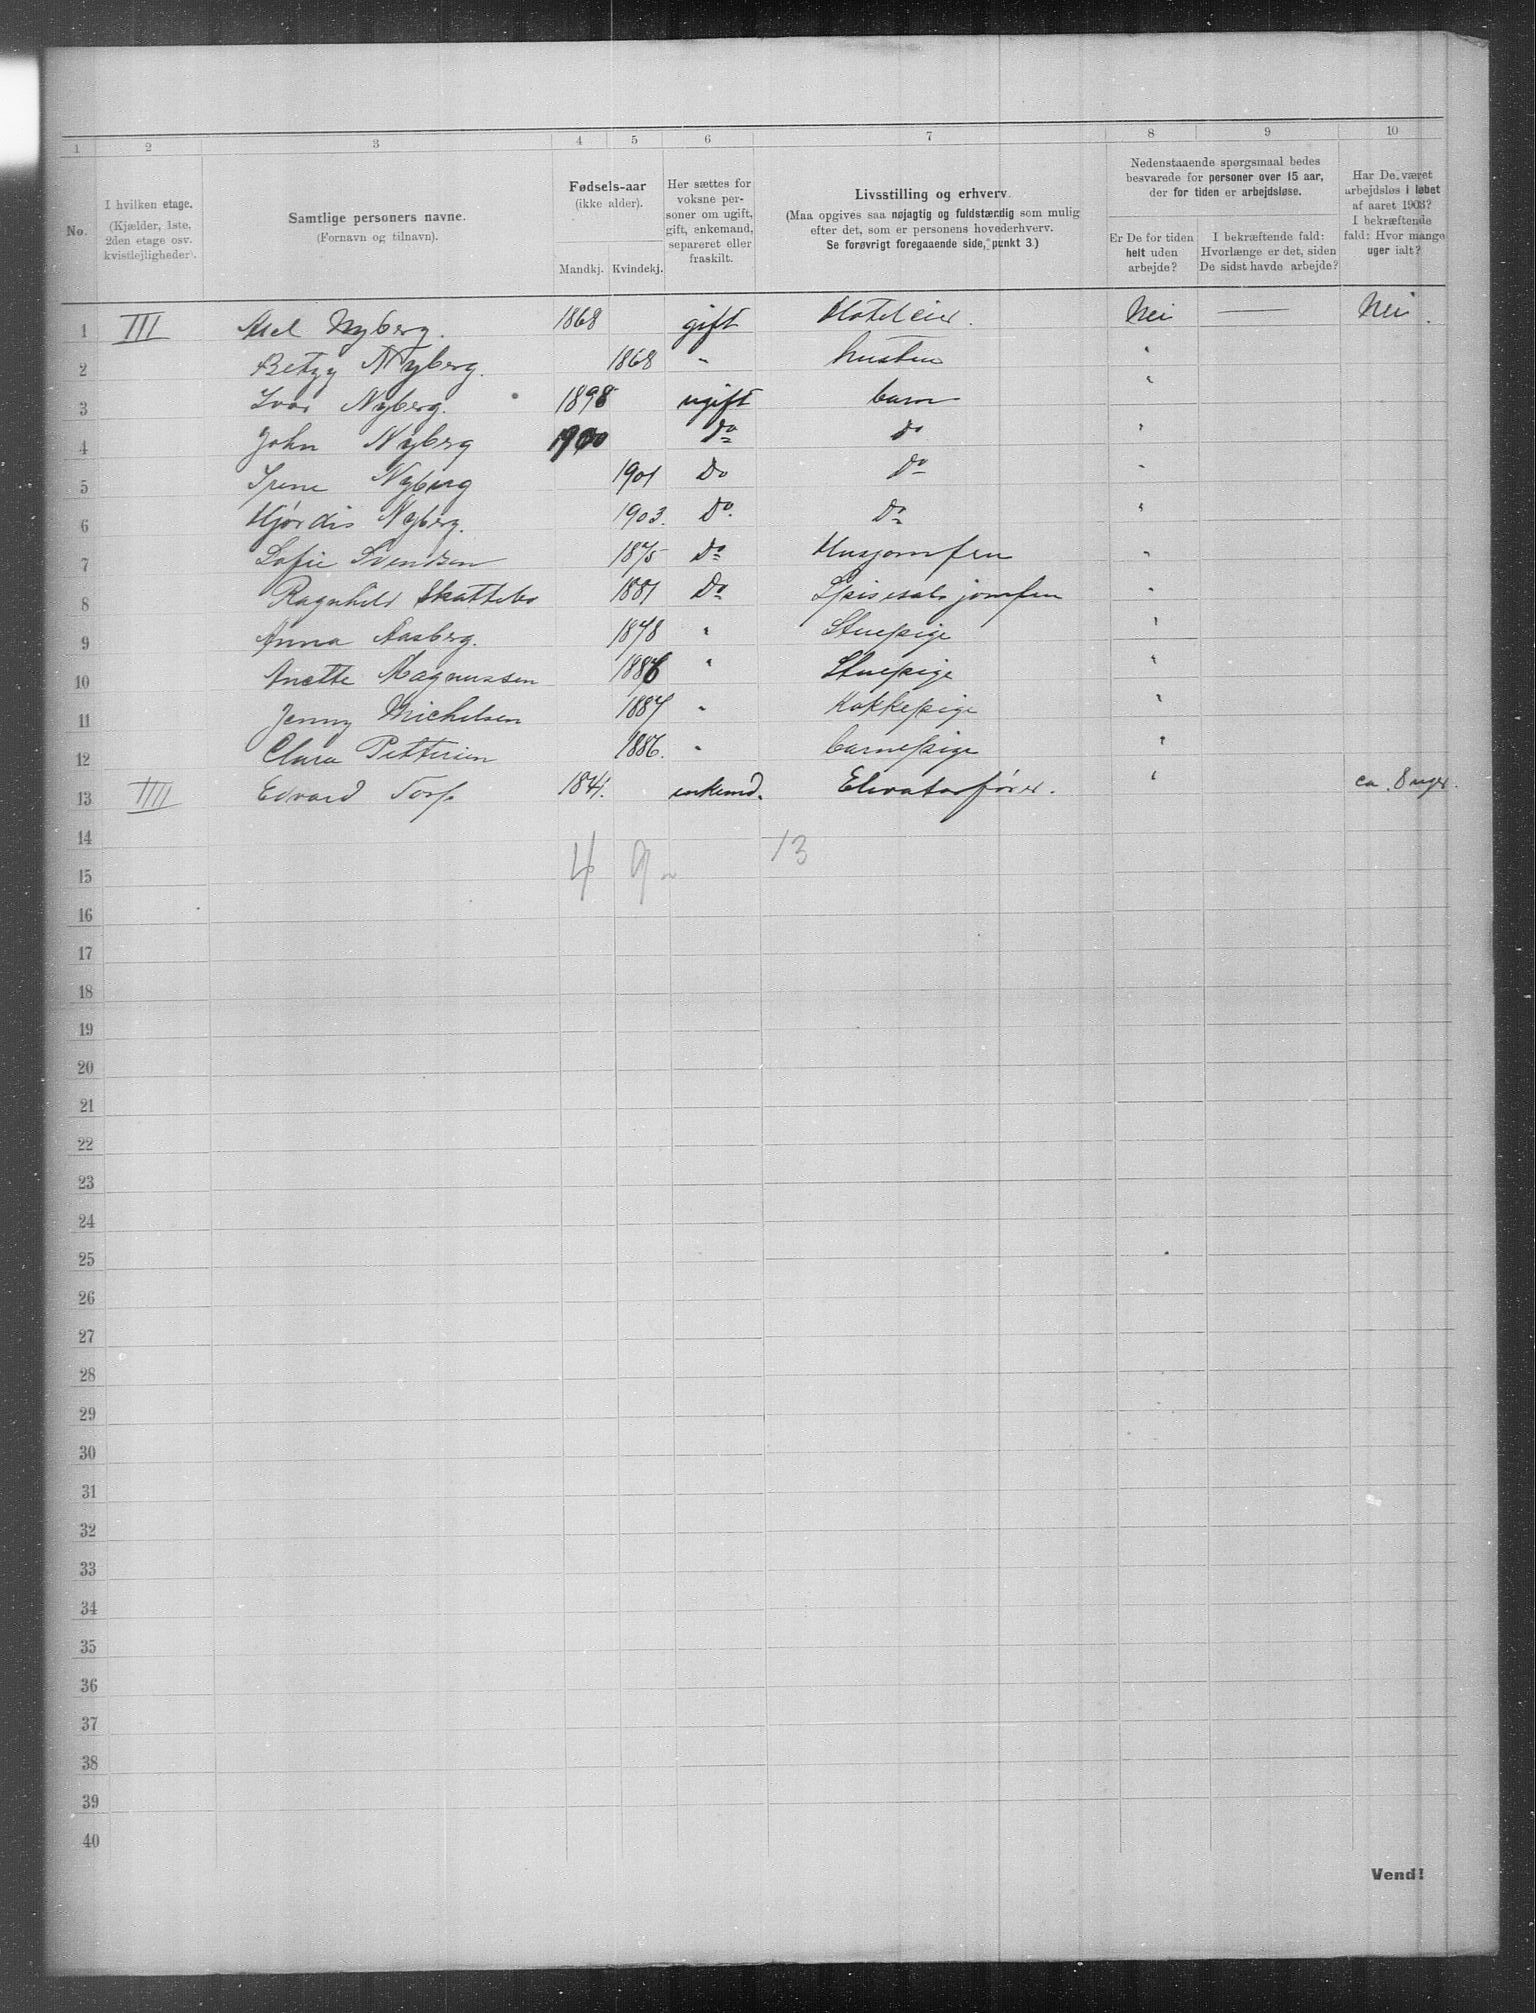 1 2 3 4 5 6 7 8 9 10
No.
I hvilken etage.
(Kjælder, 1ste,
2den etage osv.
kvistlejligheder).
Samtlige personers navne.
(Fornavn og tilnavn).
Fødsels-aar
(ikke alder).
Mandkj. Kvindekj.
Her sættes for
voksne per-
soner om ugift,
gift, enkemand,
separeret eller
fraskilt.
Livsstilling og erhverv.
(Maa opgives saa nøjagtig og fuldstændig som mulig
efter det, som er personens hovederhverv.
Se forøvrigt foregaaende side, punkt 3.)
Nedenstaaende spørgsmaal bedes
besvarede for personer over 15 aar,
der for tiden er arbejdsløse.
Er De for tiden
helt uden
arbejde?
I bekræftende fald:
Hvorlænge er det, siden
De sidst havde arbejde?
Har De været
arbejdsløs i løbet
af aaret 1903?
I bekræftende
fald: Hvor mange
uger ialt?
1 III Axel Nyberg. 1868 gift Hoteleier. Nei — Nei.
2 Betzy Nyberg. 1868 " hustru "
3 Ivar Nyberg. 1898 ugift barn "
4 John Nyberg 1900 Do Do "
5 Irene Nyberg 1901 Do Do "
6 Hjørdis Nyberg. 1903. Do. Do "
7 Sofie Svendsen 1875 Do Husjomfru "
8 Ragnhild Skattebo 1881 Do Spisesalsjomfru "
9 Anna Aasberg. 1878 " Stuepige "
10 Anette Magnussen 1886 " Stuepige "
11 Jenny Michelsen 1887 " Kokkepige "
12 Clara Pettersen 1886. " barnepige "
13 IIII Edvard Torp 1841. enkemd. Elevatorfører. " ca. 8 uger.
14
4 9 13
15
16
17
18
19
20
21
22
23
24
25
26
27
28
29
30
31
32
33
34
35
36
37
38
39
40
Vend!